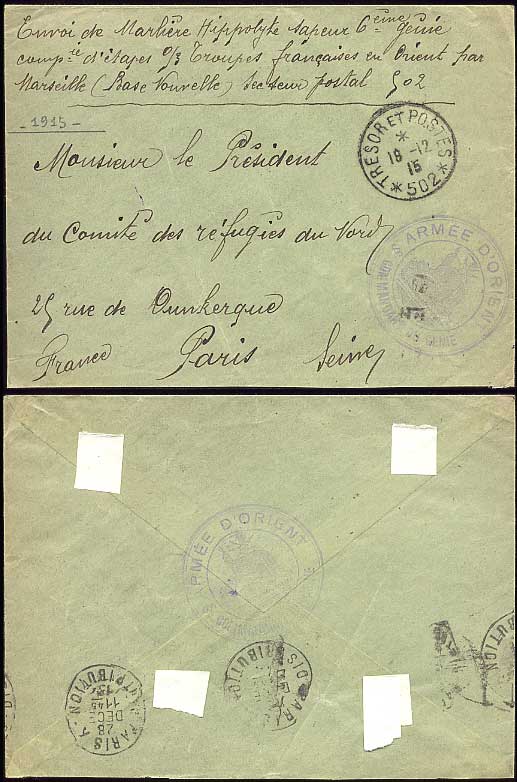 Envoi de Marlière Hippolyte sapeur 6ème Génie
comp.ie d'étapes 0/3 Troupes françaises en Orient par
Marseille (Base Nouvelle) secteur postal 502
- 1915 -
TRESOR ET POSTES
*
18-12
15
* 502 *
Monsieur le Président
du Comité des réfugiés du Nord
ARMÉE D'ORIENT
DU GÉNIE
25 rue de Dunkerque
France Paris Seine
ARMÉE D'ORIENT
DISTRIBUTION
PARIS
DISTRIBUTION
1145
DECE
28